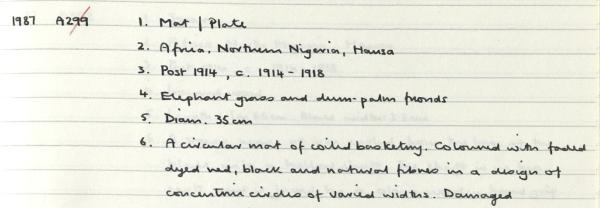 1987 A299 1. Mat / Plate
2. Africa, Northern Nigeria, Hausa
3. Post 1914, c. 1914 - 1918
4. Elephant grass and dum-palm fronds
5. Diam. 35cm
6. A circular mat of coiled basketry. Coloured with faded
dyed red, black and natural fibres in a design of
concentric circles of varied widths. Damaged